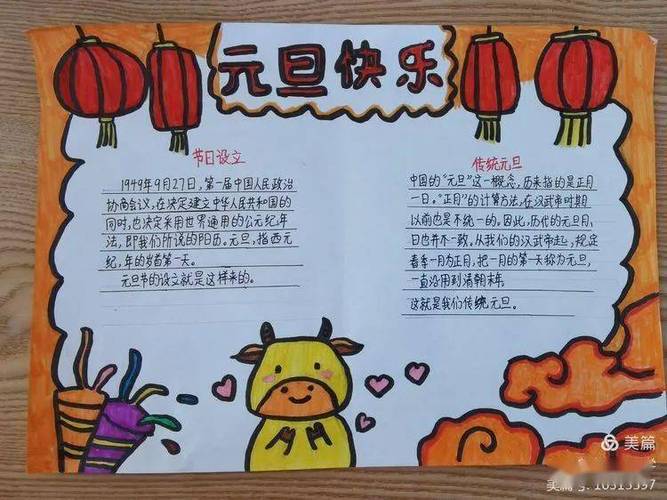 元旦快乐
节日设立
1949年9月27日，第一届中国人民政治
协商会议，在决定建立中华人民共和国的
同时，也决定采用世界通用的公元纪年
法，即我们所说的阳历。元旦，指西元
纪，年的岁首第一天。
元旦节的设立就是这样来的。
传统元旦
中国的“元旦”这一概念，历来指的是正月
一日。“正月”的计算方法，在汉武帝时期
以前也是不统一的。因此，历代的元旦月、
日也并不一致。从我们的汉武帝起，规定
春季一月为正月，把一月的第一天称为元旦，
一直沿用到清朝末年
这就是我们传统元旦。
美篇
美篇号: 10313397